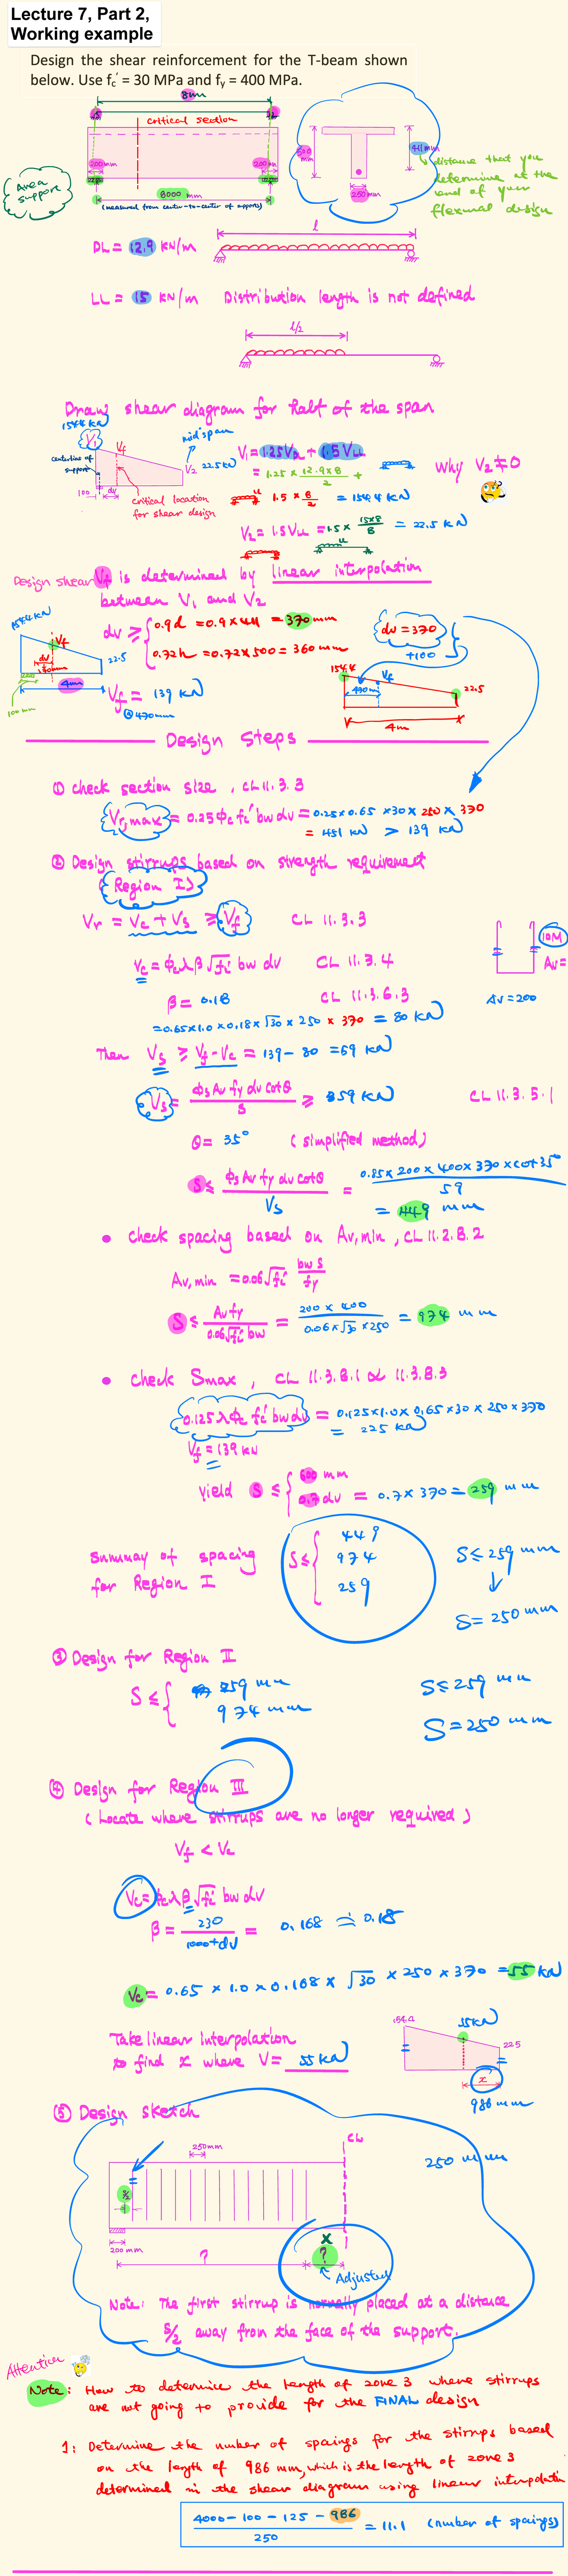 Lecture 7, Part 2,
Working example
Design the shear reinforcement for the T-beam shown
below. Use fc′ = 30 MPa and fy = 400 MPa.
8m
critical section
Area
support
200 mm
200 mm
8000 mm
(measured from center-to-center of supports)
500
mm
411 mm
250 mm
distance that you
determine at the
end of your
flexural design
DL = 12.9 kN/m
l
LL = 15 kN/m Distribution length is not defined
l/2
Draw shear diagram for half of the span
154.4 kN
V1
Vf
mid span
centerline of
support
V2 22.5kN
100
dv
critical location
for shear design
V1 = 1.25VDL + 1.5VLL
= 1.25 × 12.9×8/2 +
1.5 × 8/2 = 154.4 kN
Why V2 ≠ 0
V2 = 1.5VLL = 1.5 × 15×8/8 = 22.5 kN
Design shear Vf is determined by linear interpolation
between V1 and V2
154.4 kN
Vf
dv
22.5
100 mm
4m
dv ≥ { 0.9d = 0.9 × 411 = 370 mm
0.72h = 0.72 × 500 = 360 mm
Vf = 139 kN
@470mm
dv = 370
+100
154.4
Vf
470m
22.5
4m
Design Steps
① check section size, CL 11.3.3
Vr,max = 0.25 ϕc fc′ bw dv = 0.25 × 0.65 × 30 × 250 × 370
= 451 kN > 139 kN
② Design stirrups based on strength requirement
(Region I)
Vr = Vc + Vs ≥ Vf CL 11.3.3
Vc = ϕc λ β √fc′ bw dv CL 11.3.4
β = 0.18 CL 11.3.6.3
= 0.65×1.0×0.18×√30 × 250 × 370 = 80 kN
10M
Av =
Av = 200
Then Vs ≥ Vf - Vc = 139 - 80 = 59 kN
Vs = ϕs Av fy dv cotθ / S ≥ 59 kN CL 11.3.5.1
θ = 35° (simplified method)
S ≤ ϕs Av fy dv cotθ / Vs = 0.85 × 200 × 400 × 370 × cot35° / 59
= 449 mm
• check spacing based on Av,min, CL 11.2.8.2
Av,min = 0.06 √fc′ bw S / fy
S ≤ Av fy / 0.06√fc′ bw = 200 × 400 / 0.06 × √30 × 250 = 974 mm
• check Smax, CL 11.3.8.1 & 11.3.8.3
0.125 λ ϕc fc′ bw dv = 0.125×1.0×0.65×30 × 250 × 370
= 225 kN
Vf = 139 kN
Yield S ≤ { 600 mm
0.7dv = 0.7 × 370 = 259 mm
Summary of spacing
for Region I
S ≤ { 449
974
259
S ≤ 259 mm
S = 250 mm
③ Design for Region II
S ≤ { 259 mm
974 mm
S ≤ 259 mm
S = 250 mm
④ Design for Region III
(Locate where stirrups are no longer required)
Vf < Vc
Vc = ϕc λ β √fc′ bw dv
β = 230 / 1000+dv = 0.168 ≐ 0.18
Vc = 0.65 × 1.0 × 0.168 × √30 × 250 × 370 = 55 kN
Take linear interpolation
to find x where V = 55 kN
154.4
55kN
22.5
x
986 mm
⑤ Design sketch
250mm
CL
250 mm
S/2
200 mm
?
x
?
Adjusted
Note: The first stirrup is normally placed at a distance
S/2 away from the face of the support.
Attention
Note: How to determine the length of zone 3 where stirrups
are not going to provide for the FINAL design
1: Determine the number of spacings for the stirrups based
on the length of 986 mm, which is the length of zone 3
determined in the shear diagram using linear interpolation
4000 - 100 - 125 - 986 / 250 = 11.1 (number of spacings)